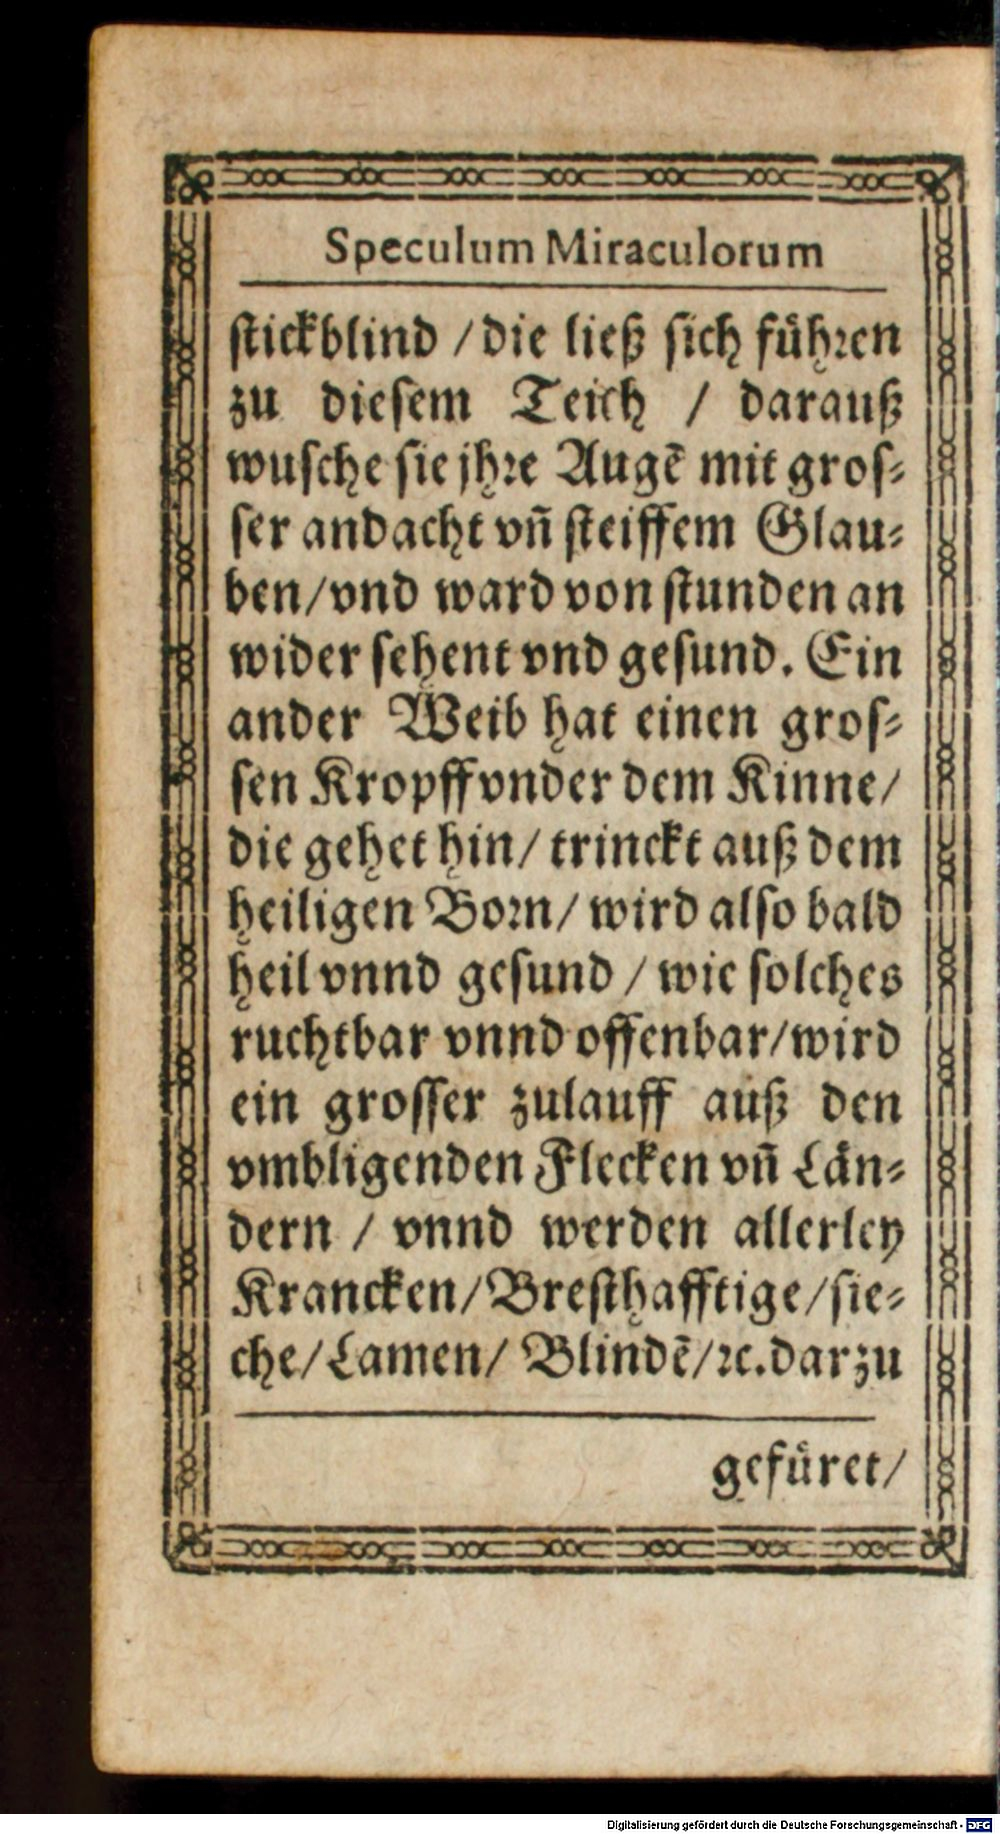 Speculum Miraculorum
stickblind / die ließ sich führen
zu diesem Teich / darauß
wusche sie jhre Augē mit gros-
ser andacht vñ steiffem Glau-
ben/vnd ward von stunden an
wider sehent vnd gesund. Ein
ander Weib hat einen gros-
sen Kropff vnder dem Kinne/
die gehet hin/ trinckt auß dem
heiligen Born/ wird also bald
heil vnnd gesund / wie solches
ruchtbar vnnd offenbar/wird
ein grosser zulauff auß den
vmbligenden Flecken vñ Län-
dern / vnnd werden allerley
Krancken/Bresthafftige/sie-
che/Lamen/ Blindē/ꝛc.darzu
gefüret/
Digitalisierung gefördert durch die Deutsche Forschungsgemeinschaft - DFG